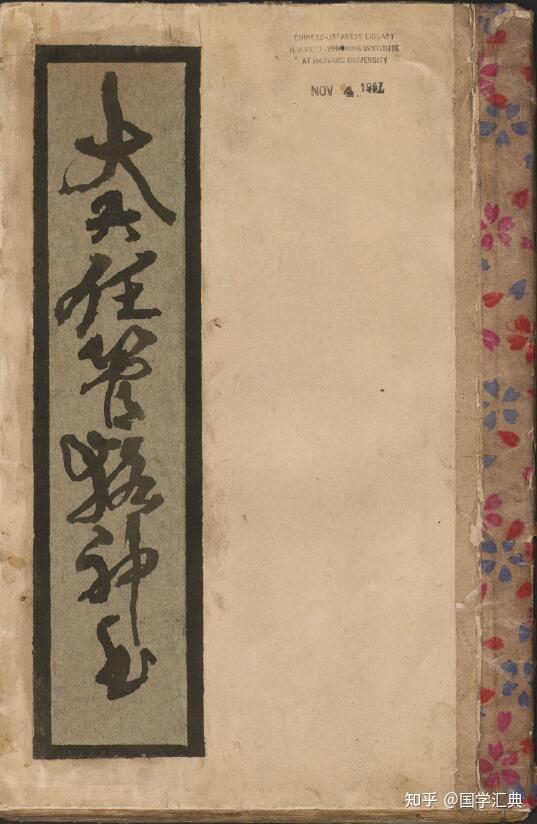 CHINESE-JAPANESE LIBRARY
HARVARD-YENCHING INSTITUTE
AT HARVARD UNIVERSITY
NOV 4
大六任管輅神书
知乎 @国学汇典